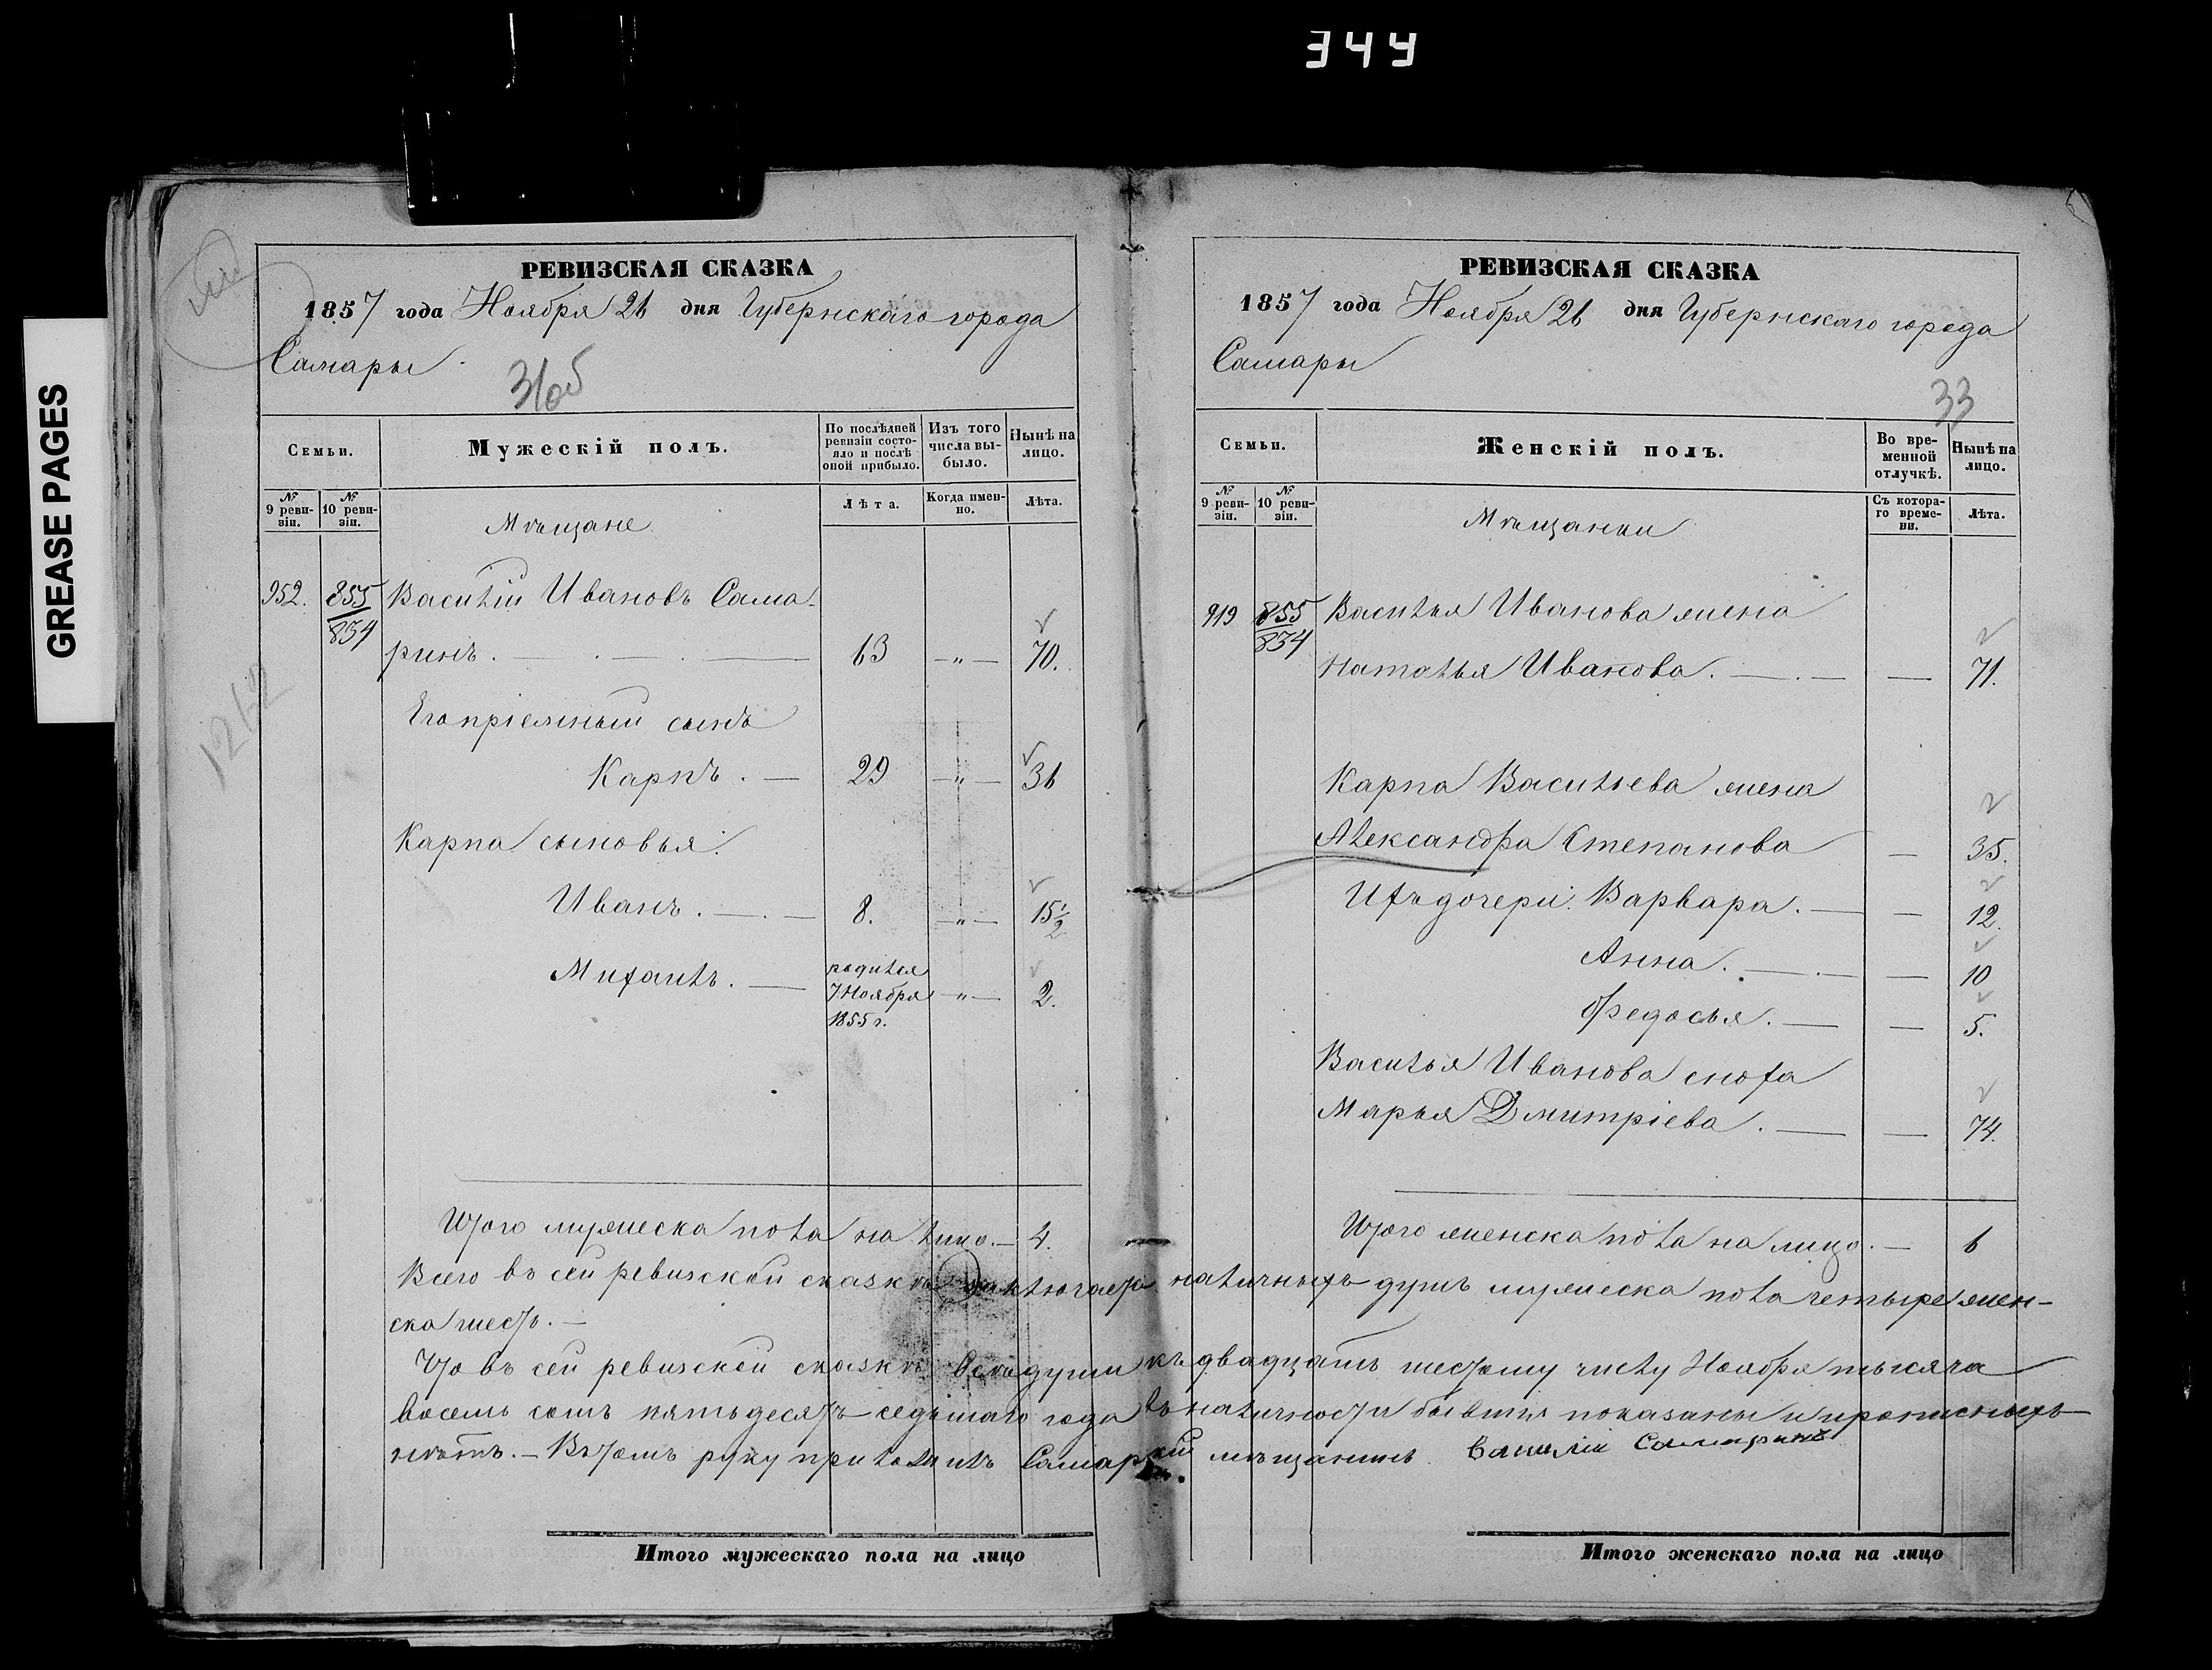 344
GREASE PAGES
РЕВИЗСКАЯ СКАЗКА
1857 года Ноября 26 дня Губернскаго города
Самары
31об
Семьи.
Мужескій полъ.
По послѣдней ревизіи состояло и послѣ оной прибыло.
Изъ того числа выбыло.
Нынѣ на лицо.
№ 9 ревизіи.
№ 10 ревизіи.
Лѣта.
Когда именно.
Лѣта.
Мѣщане
952. 855 Василій Ивановъ Сама-
834
ринъ. 63 „ 70.
Его пріемный сынъ
Карпъ. 29 „ 36
Карпа сыновья:
Иванъ. 8. „ 15½
Михаилъ. родился 7 Ноября 1855 г. „ 2.
Итого мужеска пола на лицо. 4.
1212
РЕВИЗСКАЯ СКАЗКА
1857 года Ноября 26 дня Губернскаго города
Самары
33
Семьи.
Женскій полъ.
Во временной отлучкѣ.
Нынѣ на лицо.
№ 9 ревизіи.
№ 10 ревизіи.
Съ котораго времени.
Лѣта.
Мѣщанки
919 855 Василья Иванова жена
834
Наталья Иванова. 71.
Карпа Васильева жена
Александра Степанова 35.
Ихъ дочери: Варвара. 12.
Анна. 10
Федосья. 5.
Василья Иванова сноха
Марья Дмитріева. 74.
Итого женска пола на лицо. 6
Всего въ сей ревизской сказкѣ заключается наличныхъ душъ мужеска пола четыре женска шесть.
Что въ сей ревизской сказкѣ всѣ души къ двадцать шестому числу Ноября тысяча
восемь сотъ пятьдесятъ седьмаго года въ наличности бывшія показаны и прописныхъ
нѣтъ. Въ томъ руку приложилъ Самарскій мѣщанинъ. Василій Самаринъ
Итого мужескаго пола на лицо
Итого женскаго пола на лицо